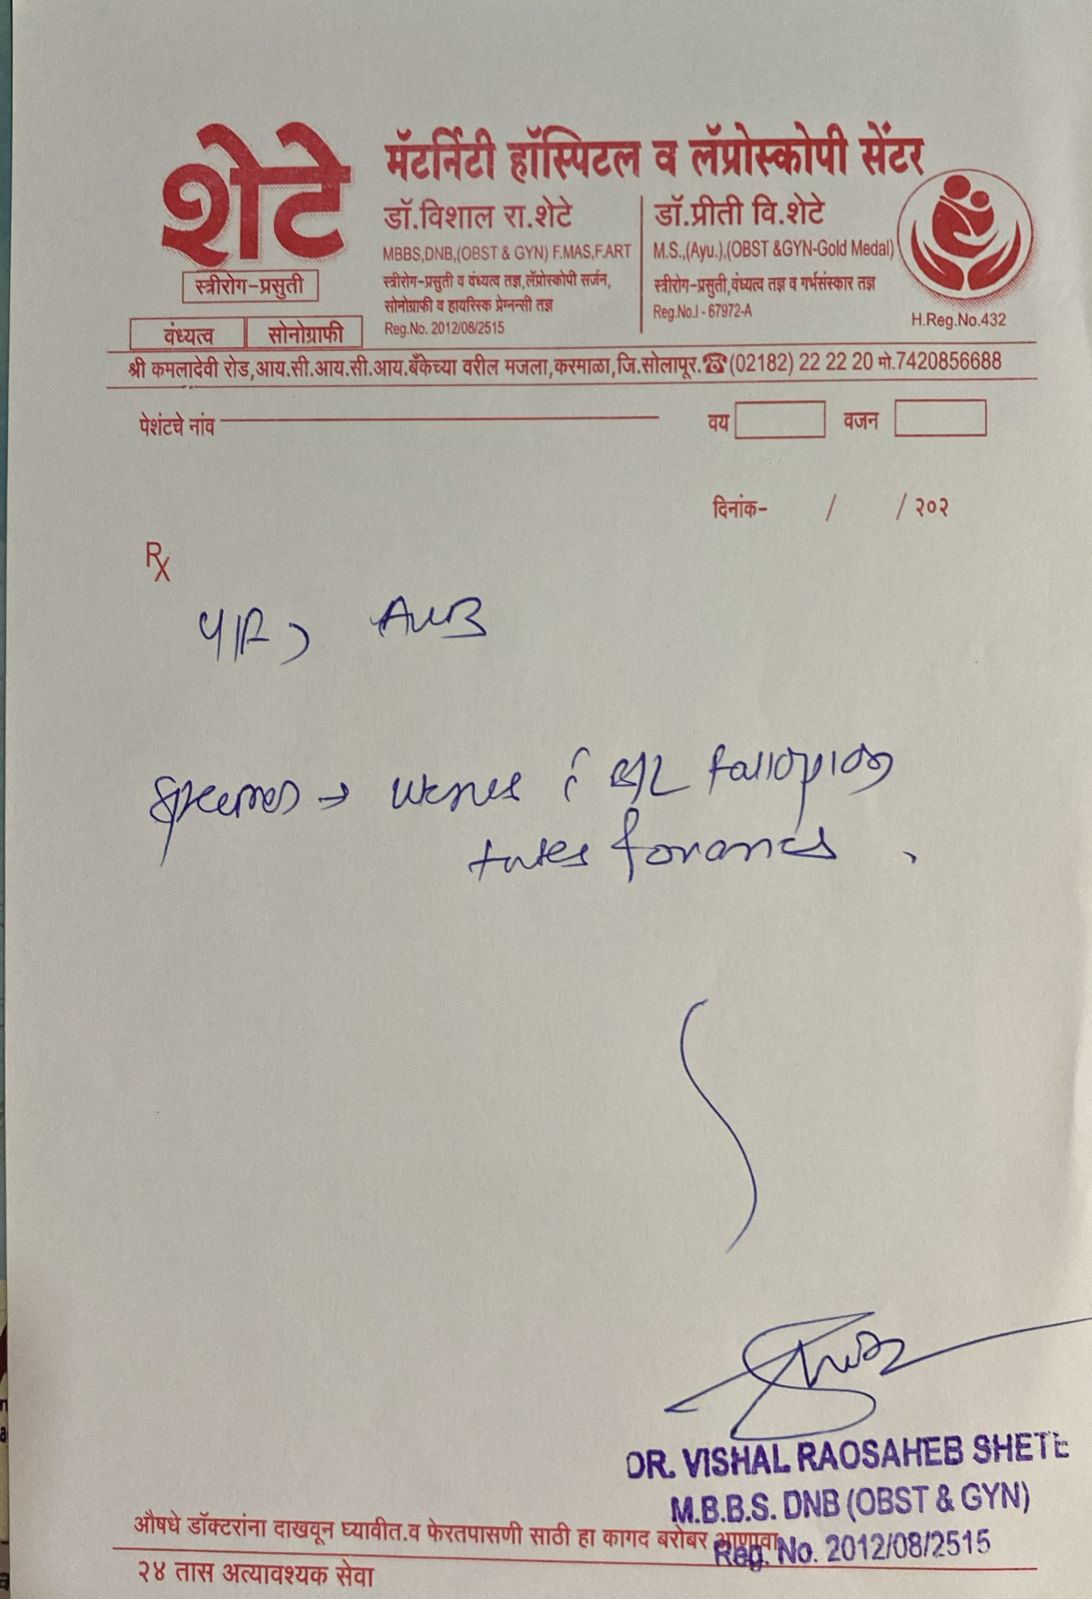 शेटे
मॅटर्निटी हॉस्पिटल व लॅप्रोस्कोपी सेंटर
स्त्रीरोग-प्रसुती
वंध्यत्व सोनोग्राफी
डॉ.विशाल रा.शेटे
MBBS,DNB,(OBST & GYN) F.MAS,F.ART
स्त्रीरोग-प्रसुती व वंध्यत्व तज्ञ,लॅप्रोस्कोपी सर्जन,
सोनोग्राफी व हायरिस्क प्रेग्नन्सी तज्ञ
Reg.No. 2012/08/2515
डॉ.प्रीती वि.शेटे
M.S.,(Ayu.),(OBST &GYN-Gold Medal)
स्त्रीरोग-प्रसुती,वंध्यत्व तज्ञ व गर्भसंस्कार तज्ञ
Reg.No.I - 67972-A
H.Reg.No.432
श्री कमलादेवी रोड,आय.सी.आय.सी.आय.बँकेच्या वरील मजला,करमाळा,जि.सोलापूर.☎(02182) 22 22 20 मो.7420856688
पेशंटचे नांव वय वजन
दिनांक- / / २०२
Rx
AUB
→ B/L fallopian
tubes
DR. VISHAL RAOSAHEB SHETE
M.B.B.S. DNB (OBST & GYN)
Reg. No. 2012/08/2515
औषधे डॉक्टरांना दाखवून घ्यावीत.व फेरतपासणी साठी हा कागद बरोबर आणावा
२४ तास अत्यावश्यक सेवा